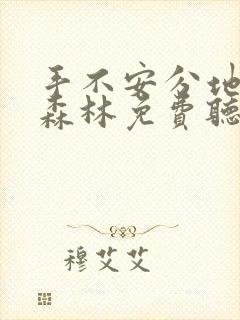 手不安分地
森林免费聽
穆艾艾